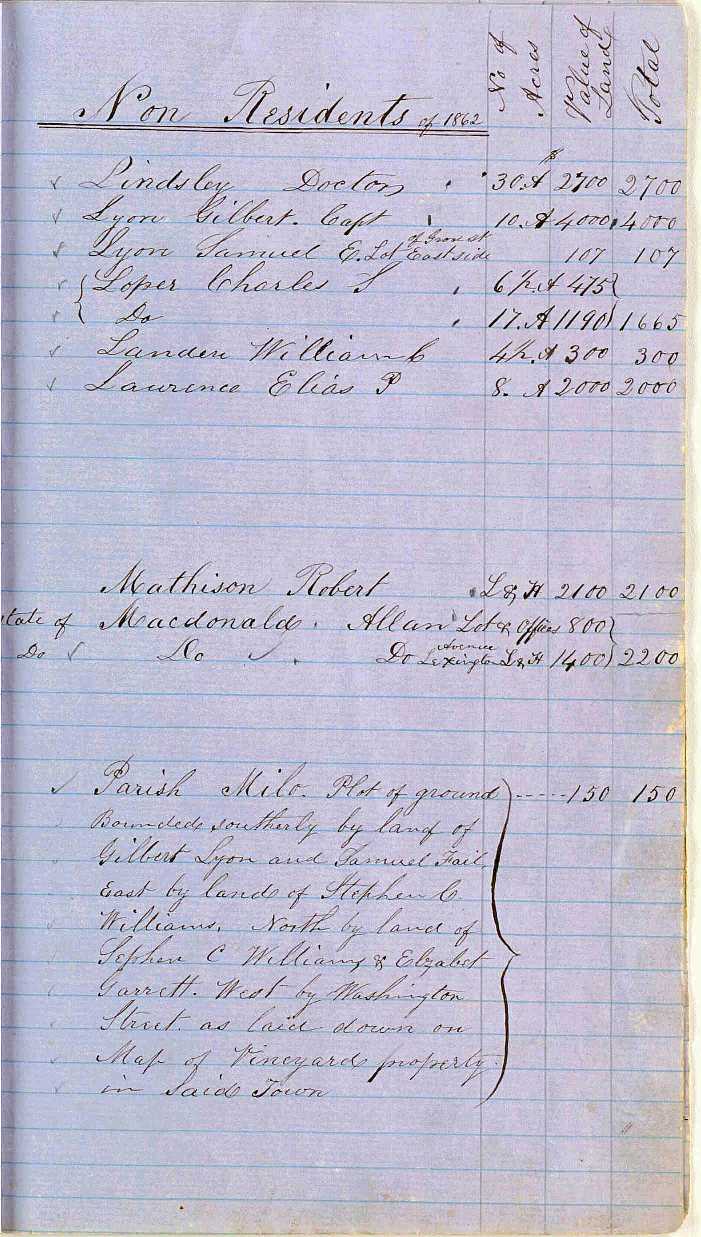 Non Residents of 1862 No of Acres Value of Land Total
Lindsley Doctor 30. A $ 2700 2700
Lyon Gilbert. Capt 10. A 4000 4000
Lyon Samuel E. Lot East side of Grove st 107 107
Loper Charles S 6 1/2. A 475
Do 17. A 1190 1665
Landers William C 4 1/2. A 300 300
Laurence Elias P 8. A 2000 2000
Mathison Robert L & H 2100 2100
state of Macdonald. Allan Lot & Offices 800
Do Do Do Lexington Avenue L & H 1400 2200
Parish Milo. Plot of ground 150 150
Bounded southerly by land of
Gilbert Lyon and Samuel Fail.
East by land of Stephen C.
Williams. North by land of
Sephen C Williams & Elzabet
Garrett. West by Washington
Street. as laid down on
Map of Vineyard property
in Said Town